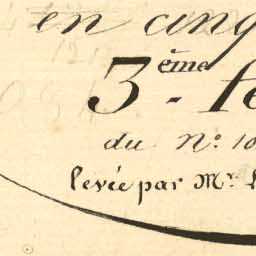 en cinq
3ème - fe
du N° 10
levée par Mr. L